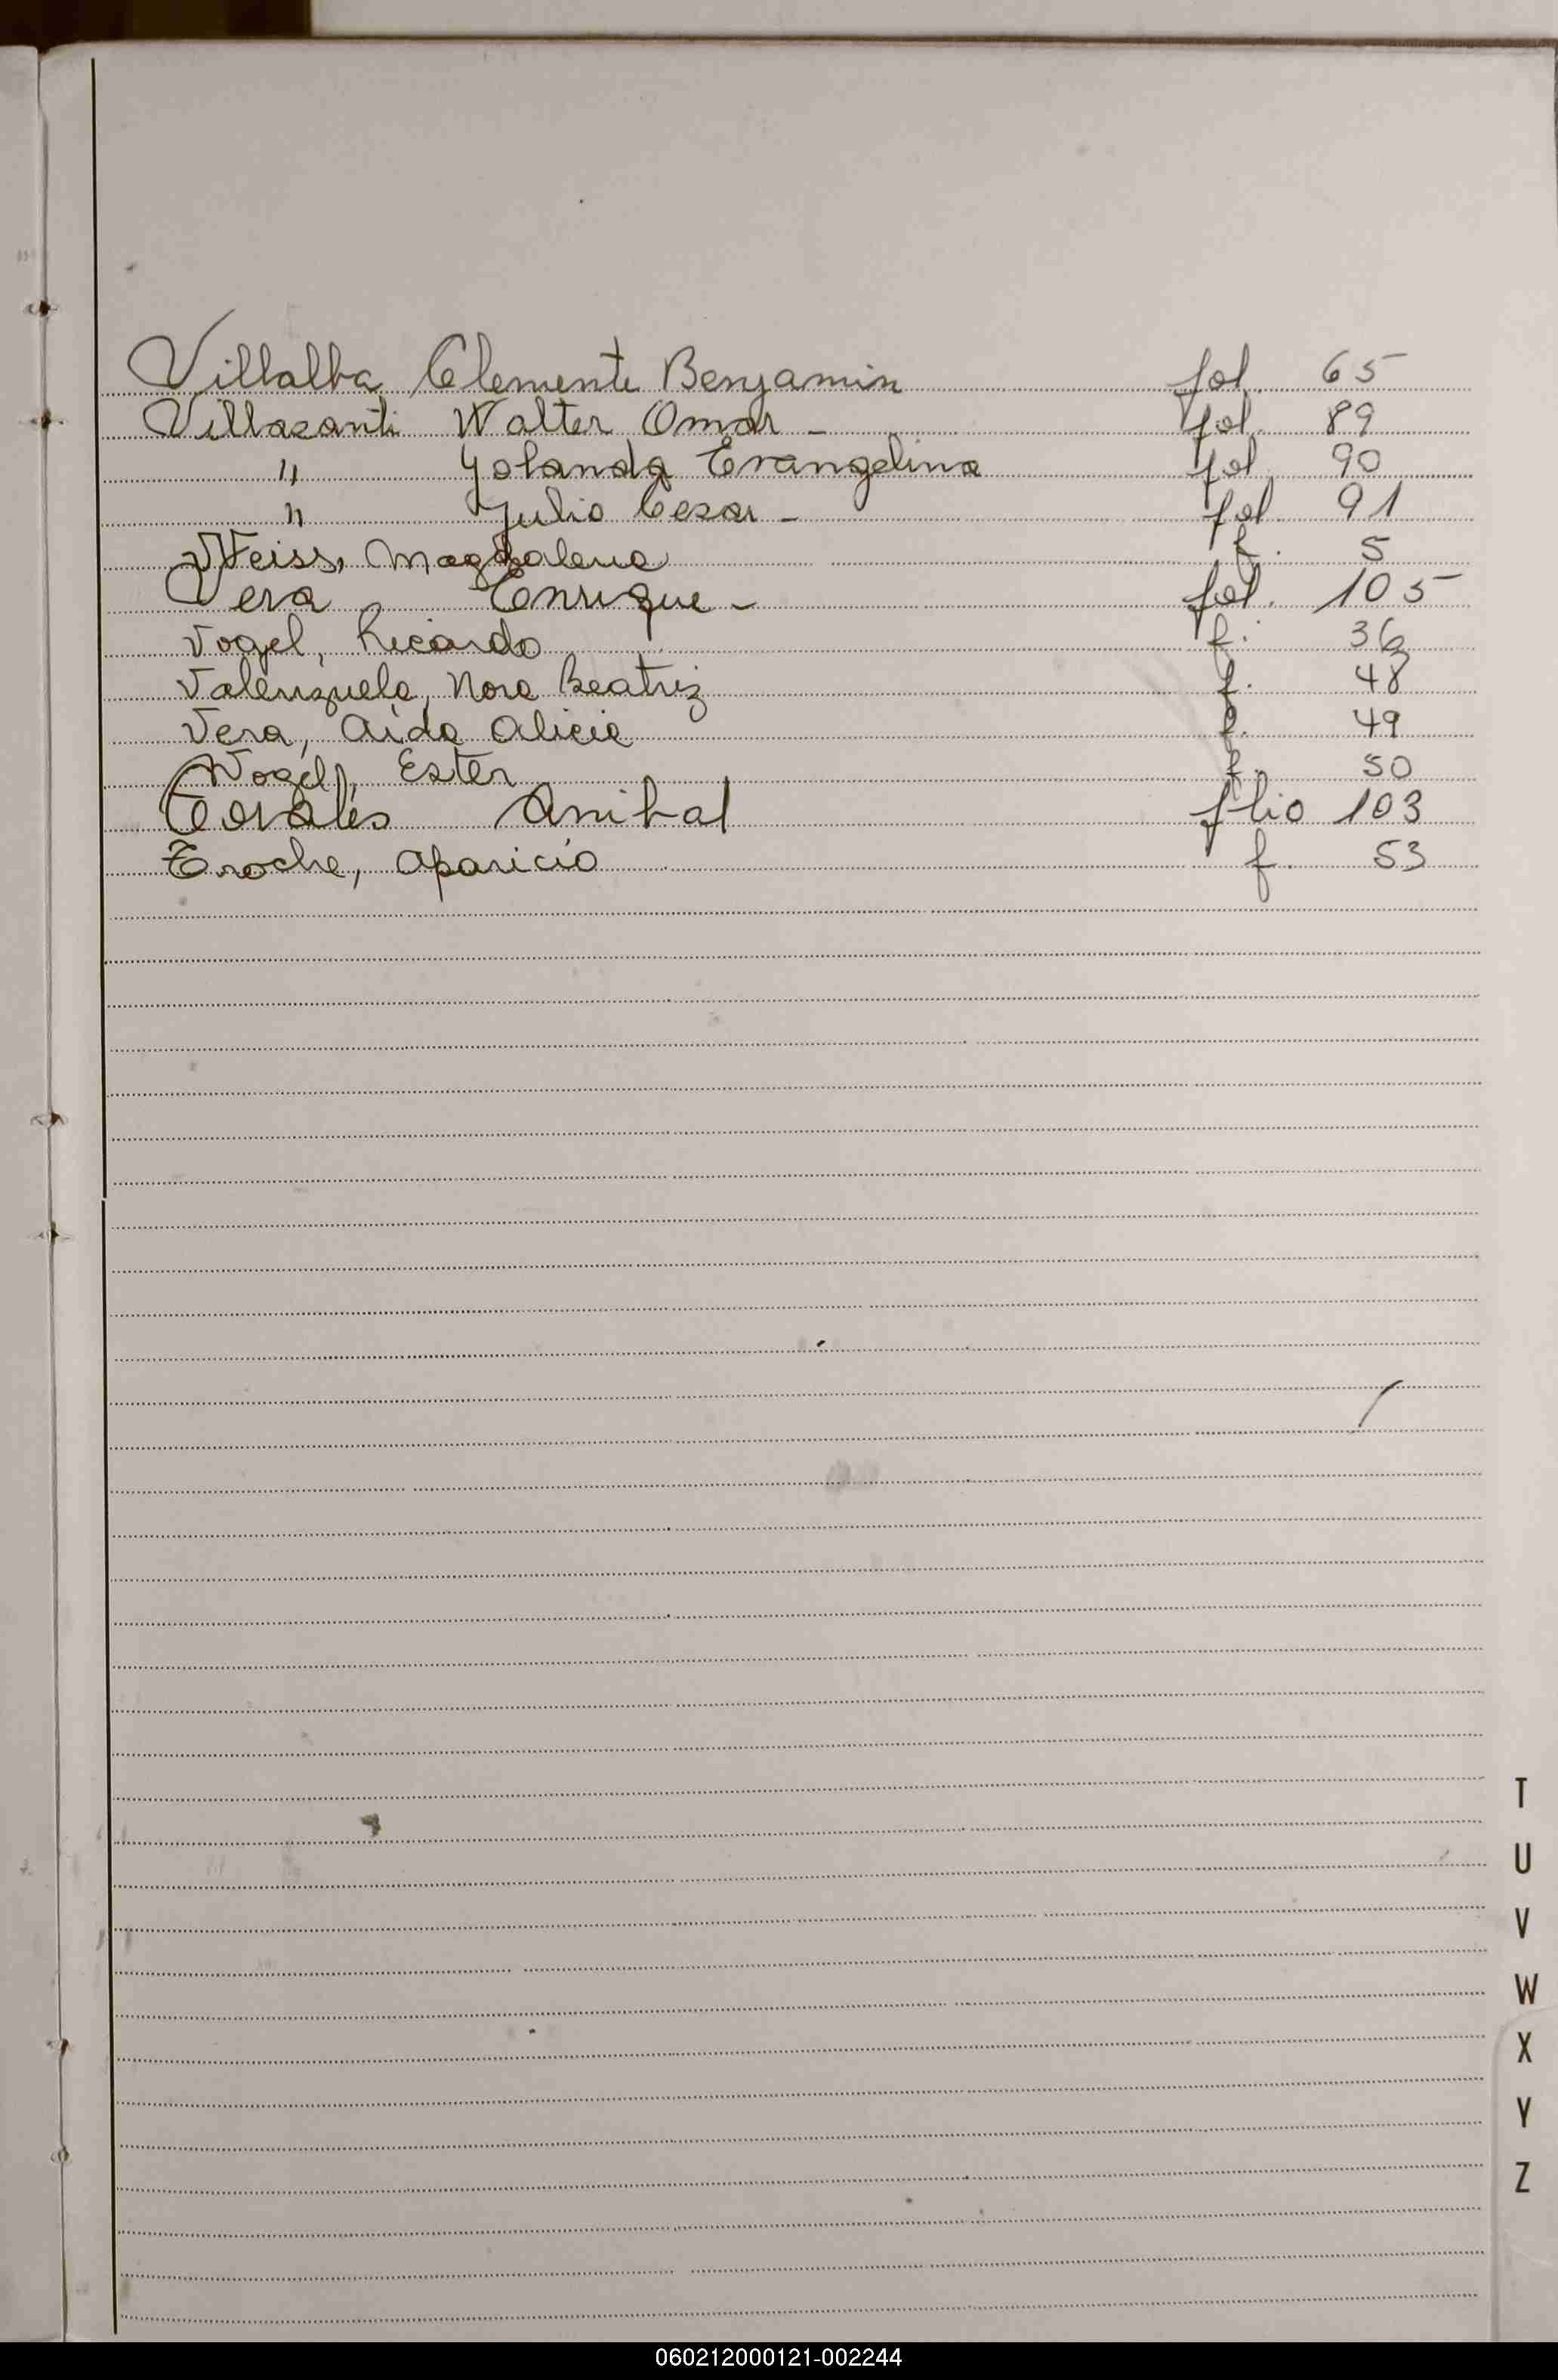 Villalba Clemente Benjamin fol. 65
Villasanti Walter Omar - fol. 89
" Yolanda Evangelina fol. 90
" Julio Cesar - fol. 91
Weiss, Magdalena f. 5
Vera Enrique - fol. 105
Vogel, Ricardo f. 36
Valenzuela, Nora Beatriz f. 48
Vera, Aída Alicia f. 49
Vogel, Ester f. 50
Anibal flio 103
Troche, Aparicio f. 53
T
U
V
W
X
Y
Z
060212000121-002244